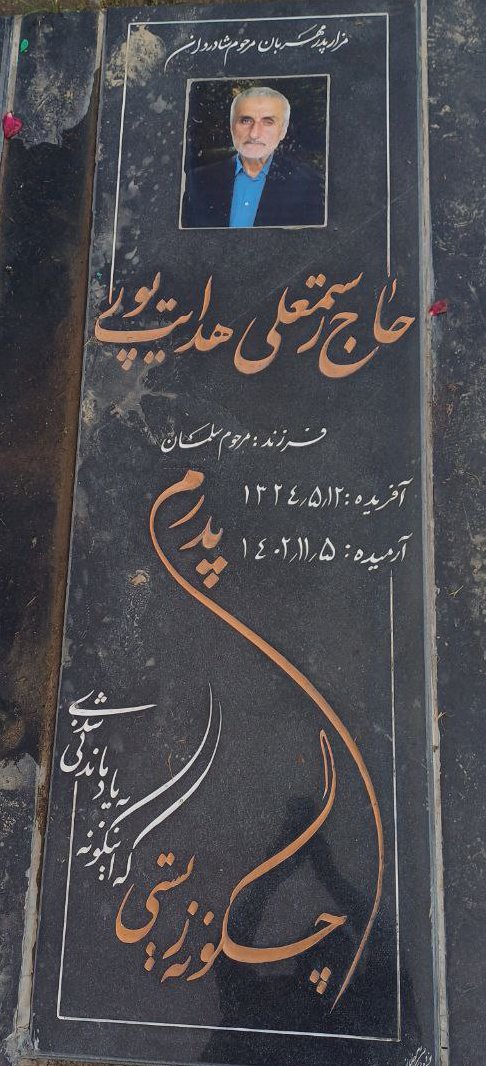 مزار پدر مهربان مرحوم شادروان
حاج رستمعلی هدایت پور
فرزند : مرحوم سلمان
آفریده : ۱۳۲٤/۵/۱۲
آرمیده : ۱٤۰۲/۱۱/۵
پدرم
چگونه زیستی
که اینگونه
به یاد ماندنی
شدی